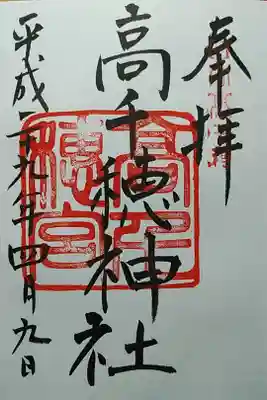 奉拝
高千穂神社
平成二九年四月九日
高千穂宮